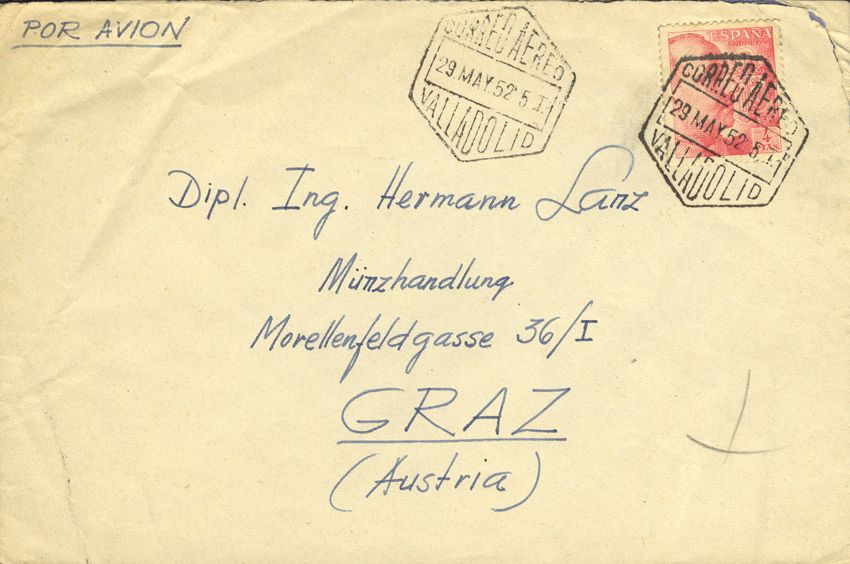 POR AVION
CORREO AEREO
29 MAY. 52 * 5. T
VALLADOLID
ESPAÑA
CORREOS
4
PTAS
CORREO AEREO
29 MAY. 52 * 5. T
VALLADOLID
Dipl. Ing. Hermann Lanz
Münzhandlung
Morellenfeldgasse 36/I
GRAZ
(Austria)